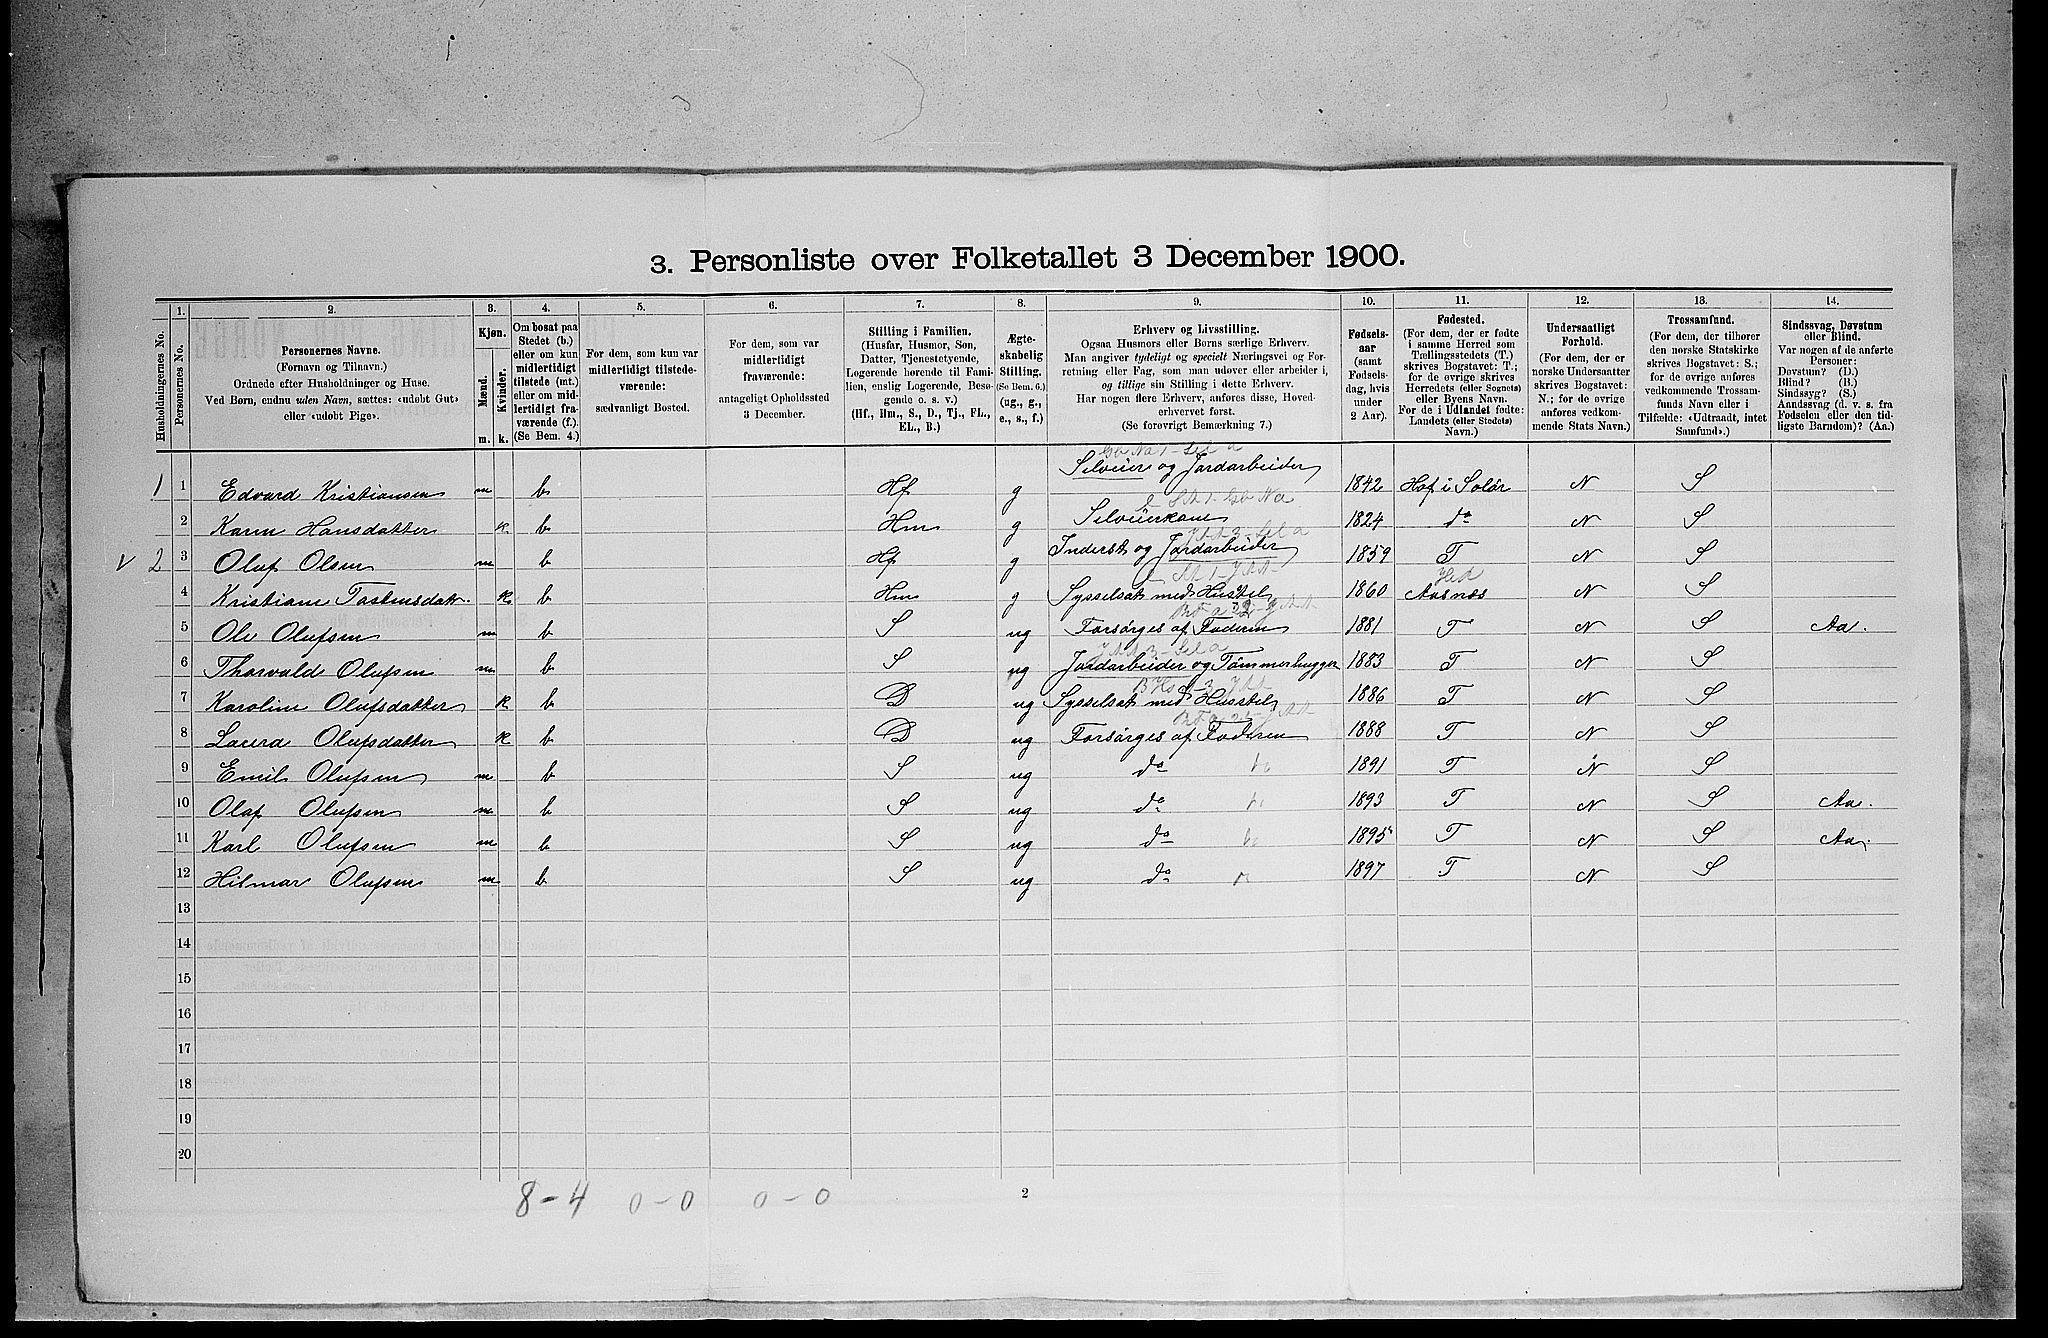 3. Personliste over Folketallet 3 December 1900.
1. 2. 3. 4. 5. 6. 7. 8. 9. 10. 11. 12. 13. 14.
Husholdningernes No.
Personernes No.
Personernes Navne.
(Fornavn og Tilnavn.)
Ordnede efter Husholdninger og Huse.
Ved Børn, endnu uden Navn, sættes: «udøbt Gut»
eller «udøbt Pige».
Kjøn.
Mænd.
Kvinder.
m. k.
Om bosat paa
Stedet (b.)
eller om kun
midlertidigt
tilstede (mt.)
eller om mid-
lertidigt fra-
værende (f.).
(Se Bem. 4.)
For dem, som kun var
midlertidigt tilstede-
værende:
sædvanligt Bosted.
For dem, som var
midlertidigt
fraværende:
antageligt Opholdssted
3 December.
Stilling i Familien.
(Husfar, Husmor, Søn,
Datter, Tjenestetyende,
Logerende hørende til Fami-
lien, enslig Logerende, Besø-
gende o. s. v.)
(Hf., Hm., S., D., Tj., FL.,
EL., B.)
Ægte-
skabelig
Stilling.
(Se Bem. 6.)
(ug., g.,
e., s., f.)
Erhverv og Livsstilling.
Ogsaa Husmors eller Børns særlige Erhverv.
Man angiver tydeligt og specielt Næringsvei og For-
retning eller Fag, som man udøver eller arbeider i,
og tillige sin Stilling i dette Erhverv.
Har nogen flere Erhverv, anføres disse, Hoved-
erhvervet først.
(Se forøvrigt Bemærkning 7.)
Fødsels-
aar
(samt
Fødsels-
dag, hvis
under
2 Aar).
Fødested.
(For dem, der er fødte
i samme Herred som
Tællingsstedets (T.)
skrives Bogstavet: T.;
for de øvrige skrives
Herredets (eller Sognets)
eller Byens Navn.
For de i Udlandet fødte:
Landets (eller Stedets)
Navn.)
Undersaatligt
Forhold.
(For dem, der er
norske Undersaatter
skrives Bogstavet:
N.; for de øvrige
anføres vedkom-
mende Stats Navn.)
Trossamfund.
(For dem, der tilhører
den norske Statskirke
skrives Bogstavet: S.;
for de øvrige anføres
vedkommende Trossam-
funds Navn eller i
Tilfælde: «Udtraadt, intet
Samfund».)
Sindssvag, Døvstum
eller Blind.
Var nogen af de anførte
Personer:
Døvstum? (D.)
Blind? (B.)
Sindssyg? (S.)
Aandssvag (d. v. s. fra
Fødselen eller den tid-
ligste Barndom)? (Aa.)
1 1 Edvard Kristiansen m b Hf g Selveier og Jordarbeider 1842 Hof i Solør N S
2 Karen Hansdatter k b Hm g Selveierkone 1824 do N S
v 2 3 Oluf Olsen m b Hf g Inderst og Jordarbeider 1859 T N S
Hed
4 Kristiane Tostensdatr. k. b Hm g Sysselsat med Husstel 1860 Aasnæs N S
5 Ole Olufsen m b S ug Forsørges af Faderen 1881 T N S Aa.
6 Thorvald Olufsen m b S ug Jordarbeider og Tømmerhugger 1883 T N S
7 Karoline Olufsdatter k b D ug Sysselsat med Husstel 1886 T N S
8 Laura Olufsdatter k b D ug Forsørges af Faderen 1888 T N S
9 Emil Olufsen m b S ug do 1891 T N S
10 Olaf Olufsen m b S ug do 1893 T N S Aa.
11 Karl Olufsen m b S ug do 1895 T N S Aa.
12 Hilmar Olufsen m b S ug do 1897 T N S
13
14
15
16
17
18
19
20
8-4 0-0 0-0
2